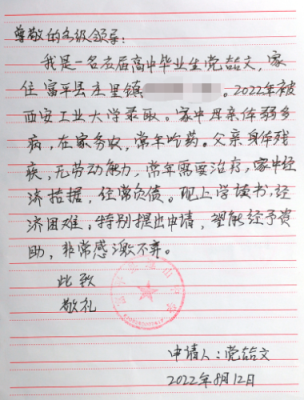 尊敬的各级领导:
我是一名应届高中毕业生党喆文,家
住富平县庄里镇。2022年被
西安工业大学录取。家中母亲体弱多
病,在家务农,常年吃药。父亲身体残
疾,无劳动能力,常年需要治疗,家中经
济拮据,经常负债。现上学读书,经
济困难,特别提出申请,望能给予资
助,非常感激不尽。
此致
敬礼
申请人:党喆文
2022年8月12日